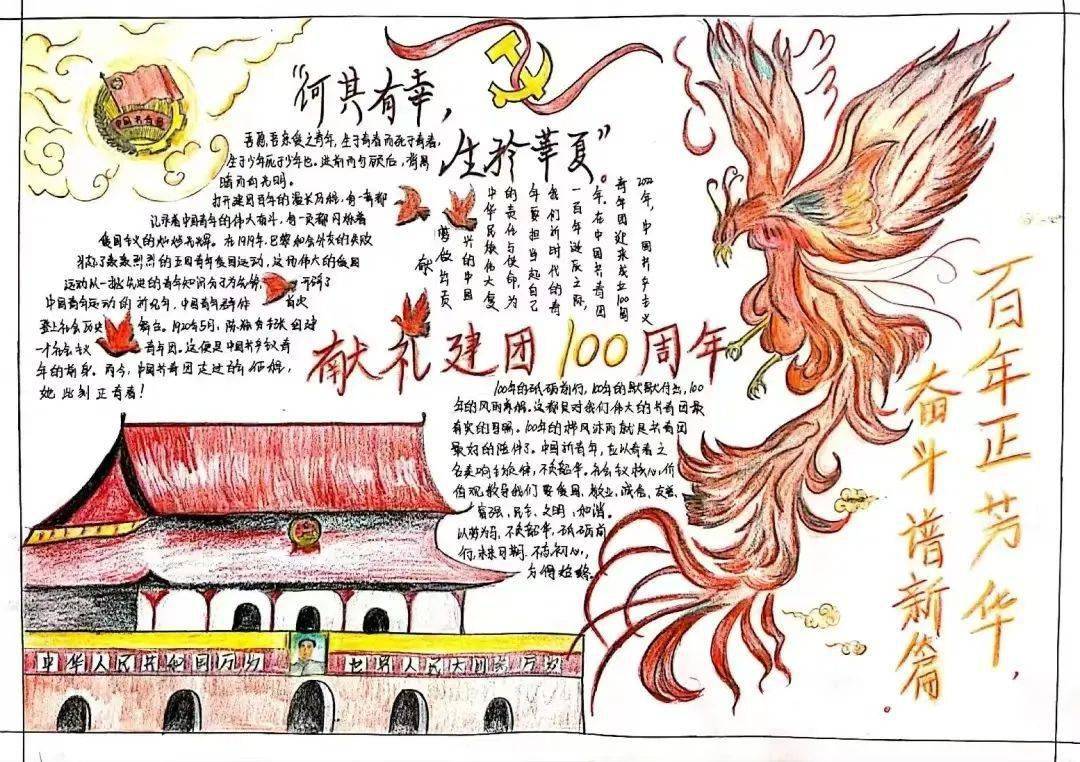 中国共青团
“何其有幸，
生于華夏”。
吾愿吾亲爱之青年，生于青春而死于青春，
生于少年死于少年也。进前而勿顾后，背黑
暗而向光明。
打开建团百年的漫长历程，每一章都
记录着中国青年的伟大奋斗，每一页都闪烁着
爱国主义的灿烂光辉。在1919年，巴黎和会外交的失败
掀起了轰轰烈烈的五四青年爱国运动，这场伟大的爱国
运动从一批先进的青年知识分子为先锋，开辟了
中国青年运动的新纪年，中国青年群体首次
登上社会历史舞台。1920年5月，陈独秀主张创建
一个社会主义青年团。这便是中国共产主义青
年的前身。而今，中国共青团走过的新征程，
她此刻正青春！
2022年，中国共产主义
青年团迎来成立100周
年。在中国共青团
一百年诞辰之际，
我们新时代的青
年要担当起自己
的责任与使命，为
中华民族伟大复
兴的中国
梦做出贡
献。
献礼建团100周年
100年的砥砺前行，100年的默默付出，100
年的风雨兼程。这都是对我们伟大的共青团最
真实的写照。100年的栉风沐雨就是共青团
最好的证件了。中国新青年，应以青春之
名奏响主旋律，不负韶华。社会主义核心价
值观教导我们要爱国、敬业、诚信、友善、
富强、民主、文明、和谐。
以梦为马，不负韶华，砥砺前
行，未来可期。不忘初心，
方得始终。
百年正芳华，
奋斗谱新篇。
中华人民共和国万岁
世界人民大团结万岁